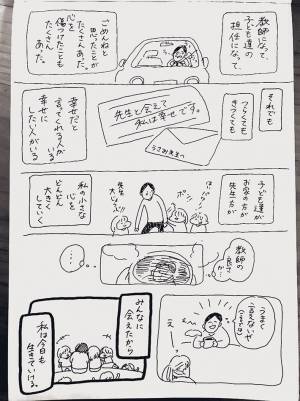 教師になって、
子ども達の
担任になって、
ごめんねと
思ったことが
たくさんあった。
心を
傷つけたことも
たくさん
あった。
それでも
つらくても
きつくても
先生と会えて
私は幸せです。
うさみ先生へ
幸せだと
言ってくれる人がいる
幸せに
したい人がいる
子ども達が
お家の方が
先生方が
先生
大じょうぶ!
ポン!
私の小さな
心を
どんどん
大きく
していく
教師の
良さか…
…
うまく
言えないぜ
え
みんなに
会えたから
私は今日も
生きていける。